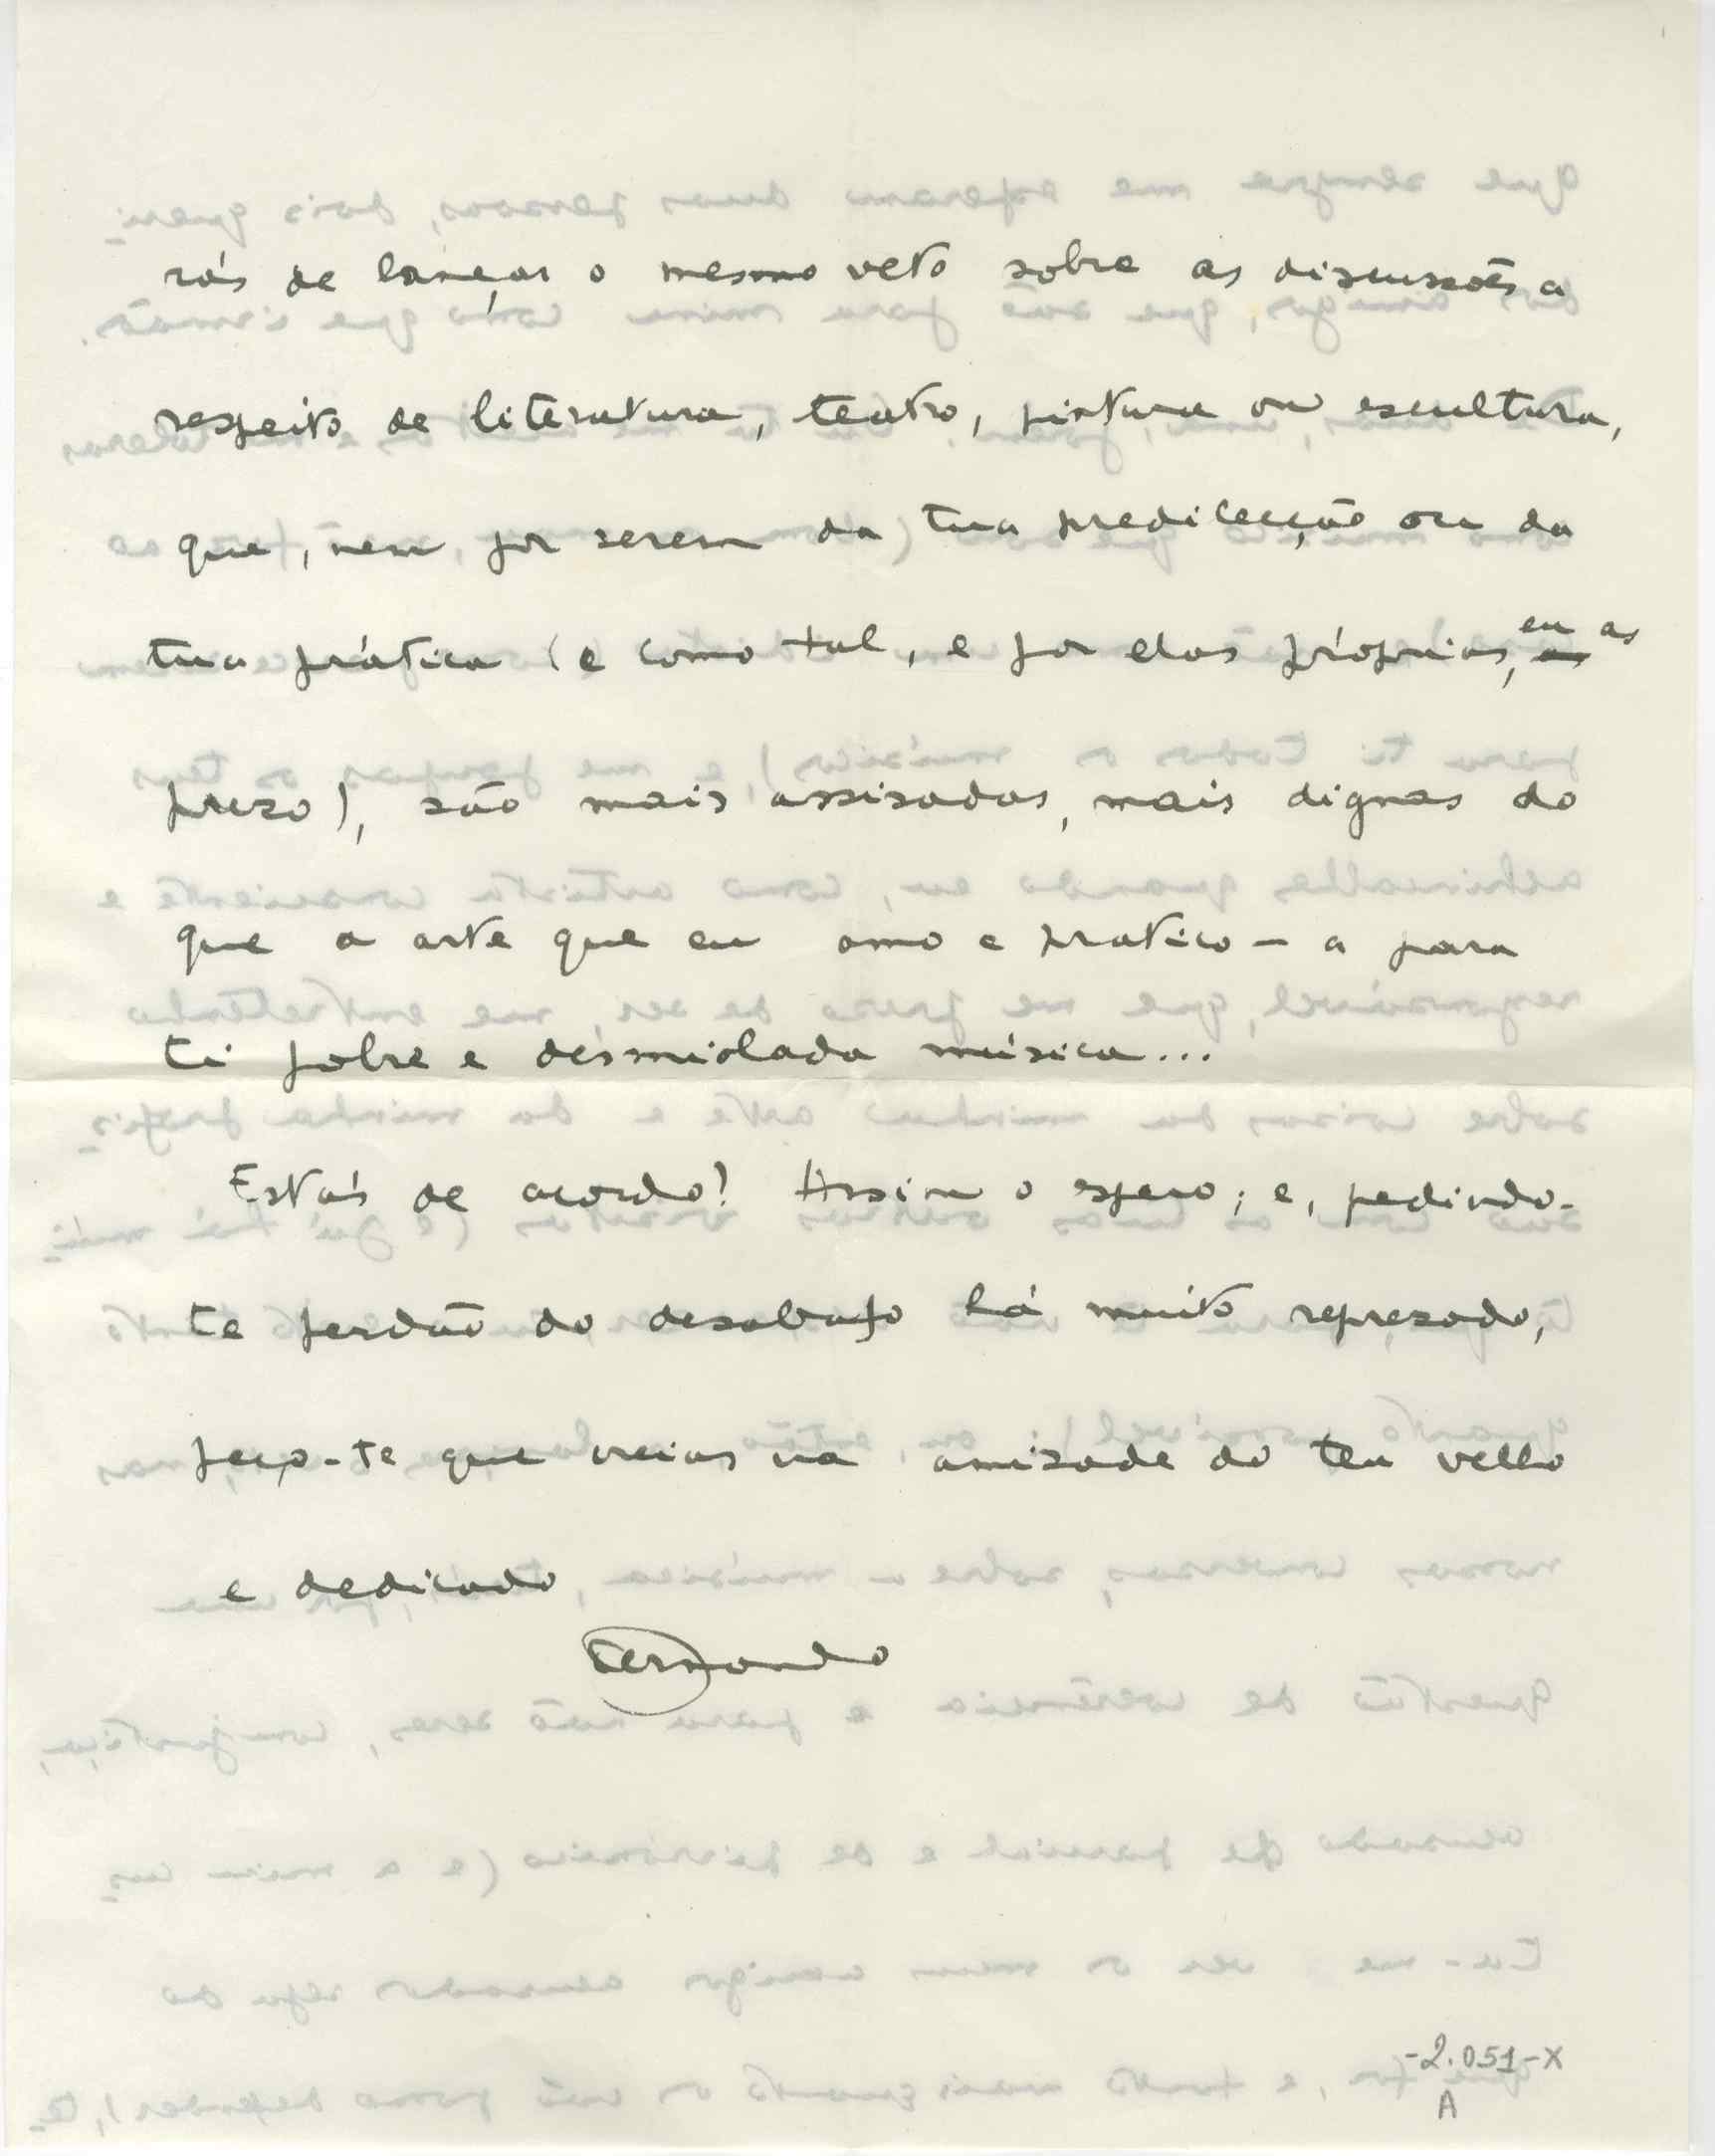 rás de lançar o mesmo veto sobre as discussões a
respeito de literatura, teatro, pintura ou escultura,
que, nem por serem da tua predilecção ou da
tua prática (e como tal, e por elas próprias, eu as
prezo), são mais assisadas, mais dignas do
que a arte que eu amo e pratico — a para
ti pobre e desmiolada música...
Estás de acordo? Assim o espero; e, pedindo-
te perdão do desabafo há muito represado,
peço-te que creias na amizade do teu velho
e dedicado
Fernando
-2.051-X
A